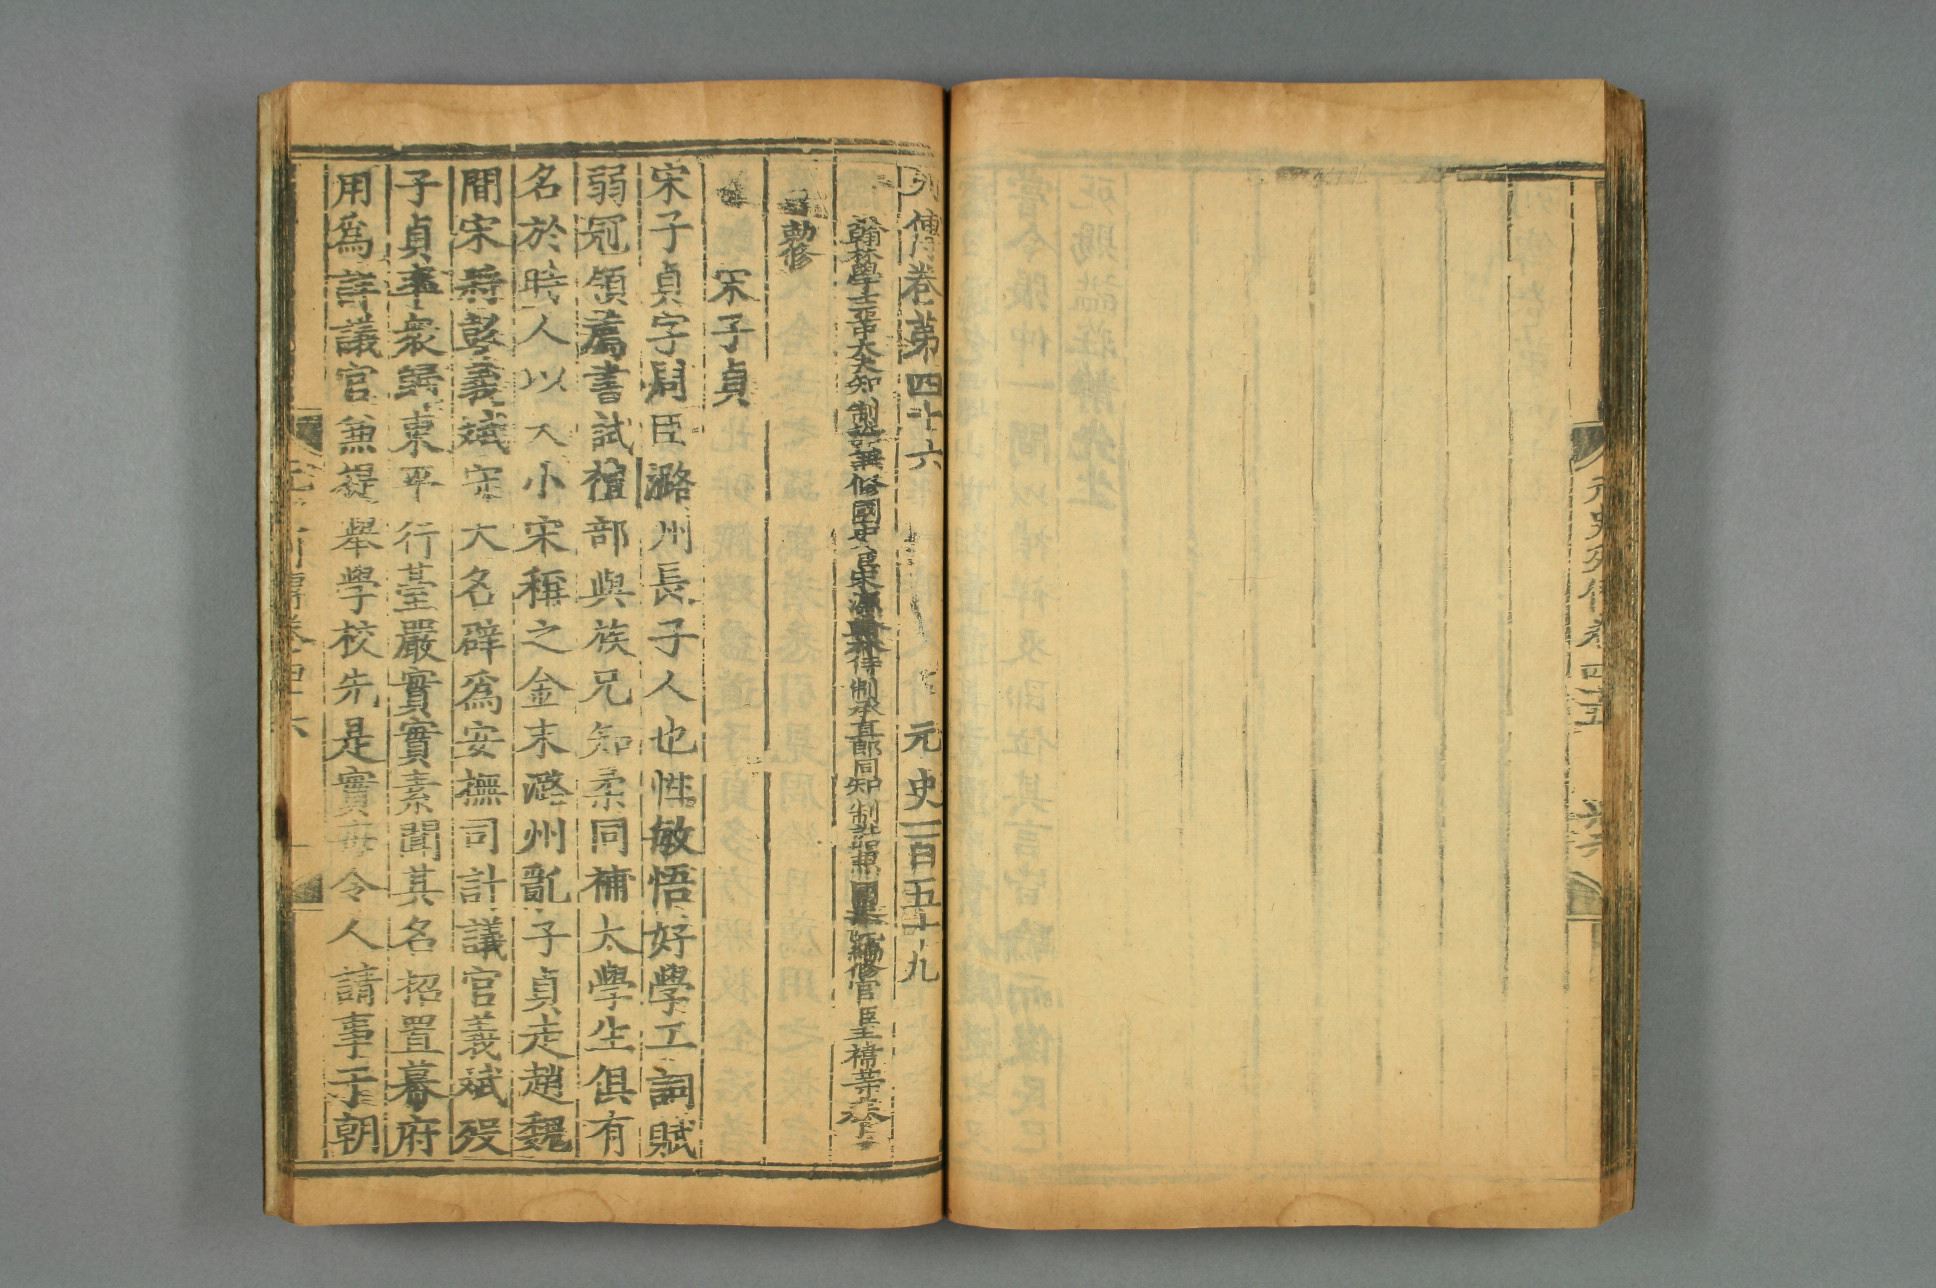 元史列傳卷四十五
列傳卷第四十六 元史一百五十九
翰林學士亞中大夫知制誥兼修國史臣宋濂翰林待制承直郎同知制誥兼國史院編修官臣王禕等奉
勅修
宋子貞
宋子貞字周臣潞州長子人也性敏悟好學工詞賦
弱冠領薦書試禮部與族兄知柔同補太學生俱有
名於時人以大小宋稱之金末潞州亂子貞走趙魏
間宋將彭義斌守大名辟爲安撫司計議官義斌歿
子貞率衆歸東平行臺嚴實實素聞其名招置幕府
用爲詳議官兼提舉學校先是實每令人請事于朝
元史列傳卷四十六